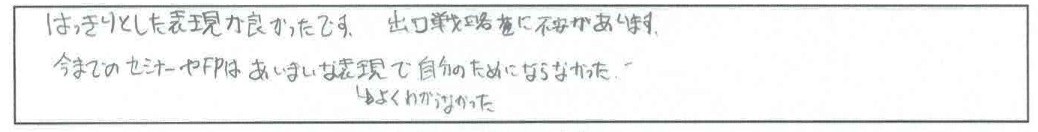 はっきりとした表現が良かったです。 出口戦略違に不安があります。
今までのセミナーやFPはあいまいな表現で自分のためにならなかった。
↳よくわからなかった